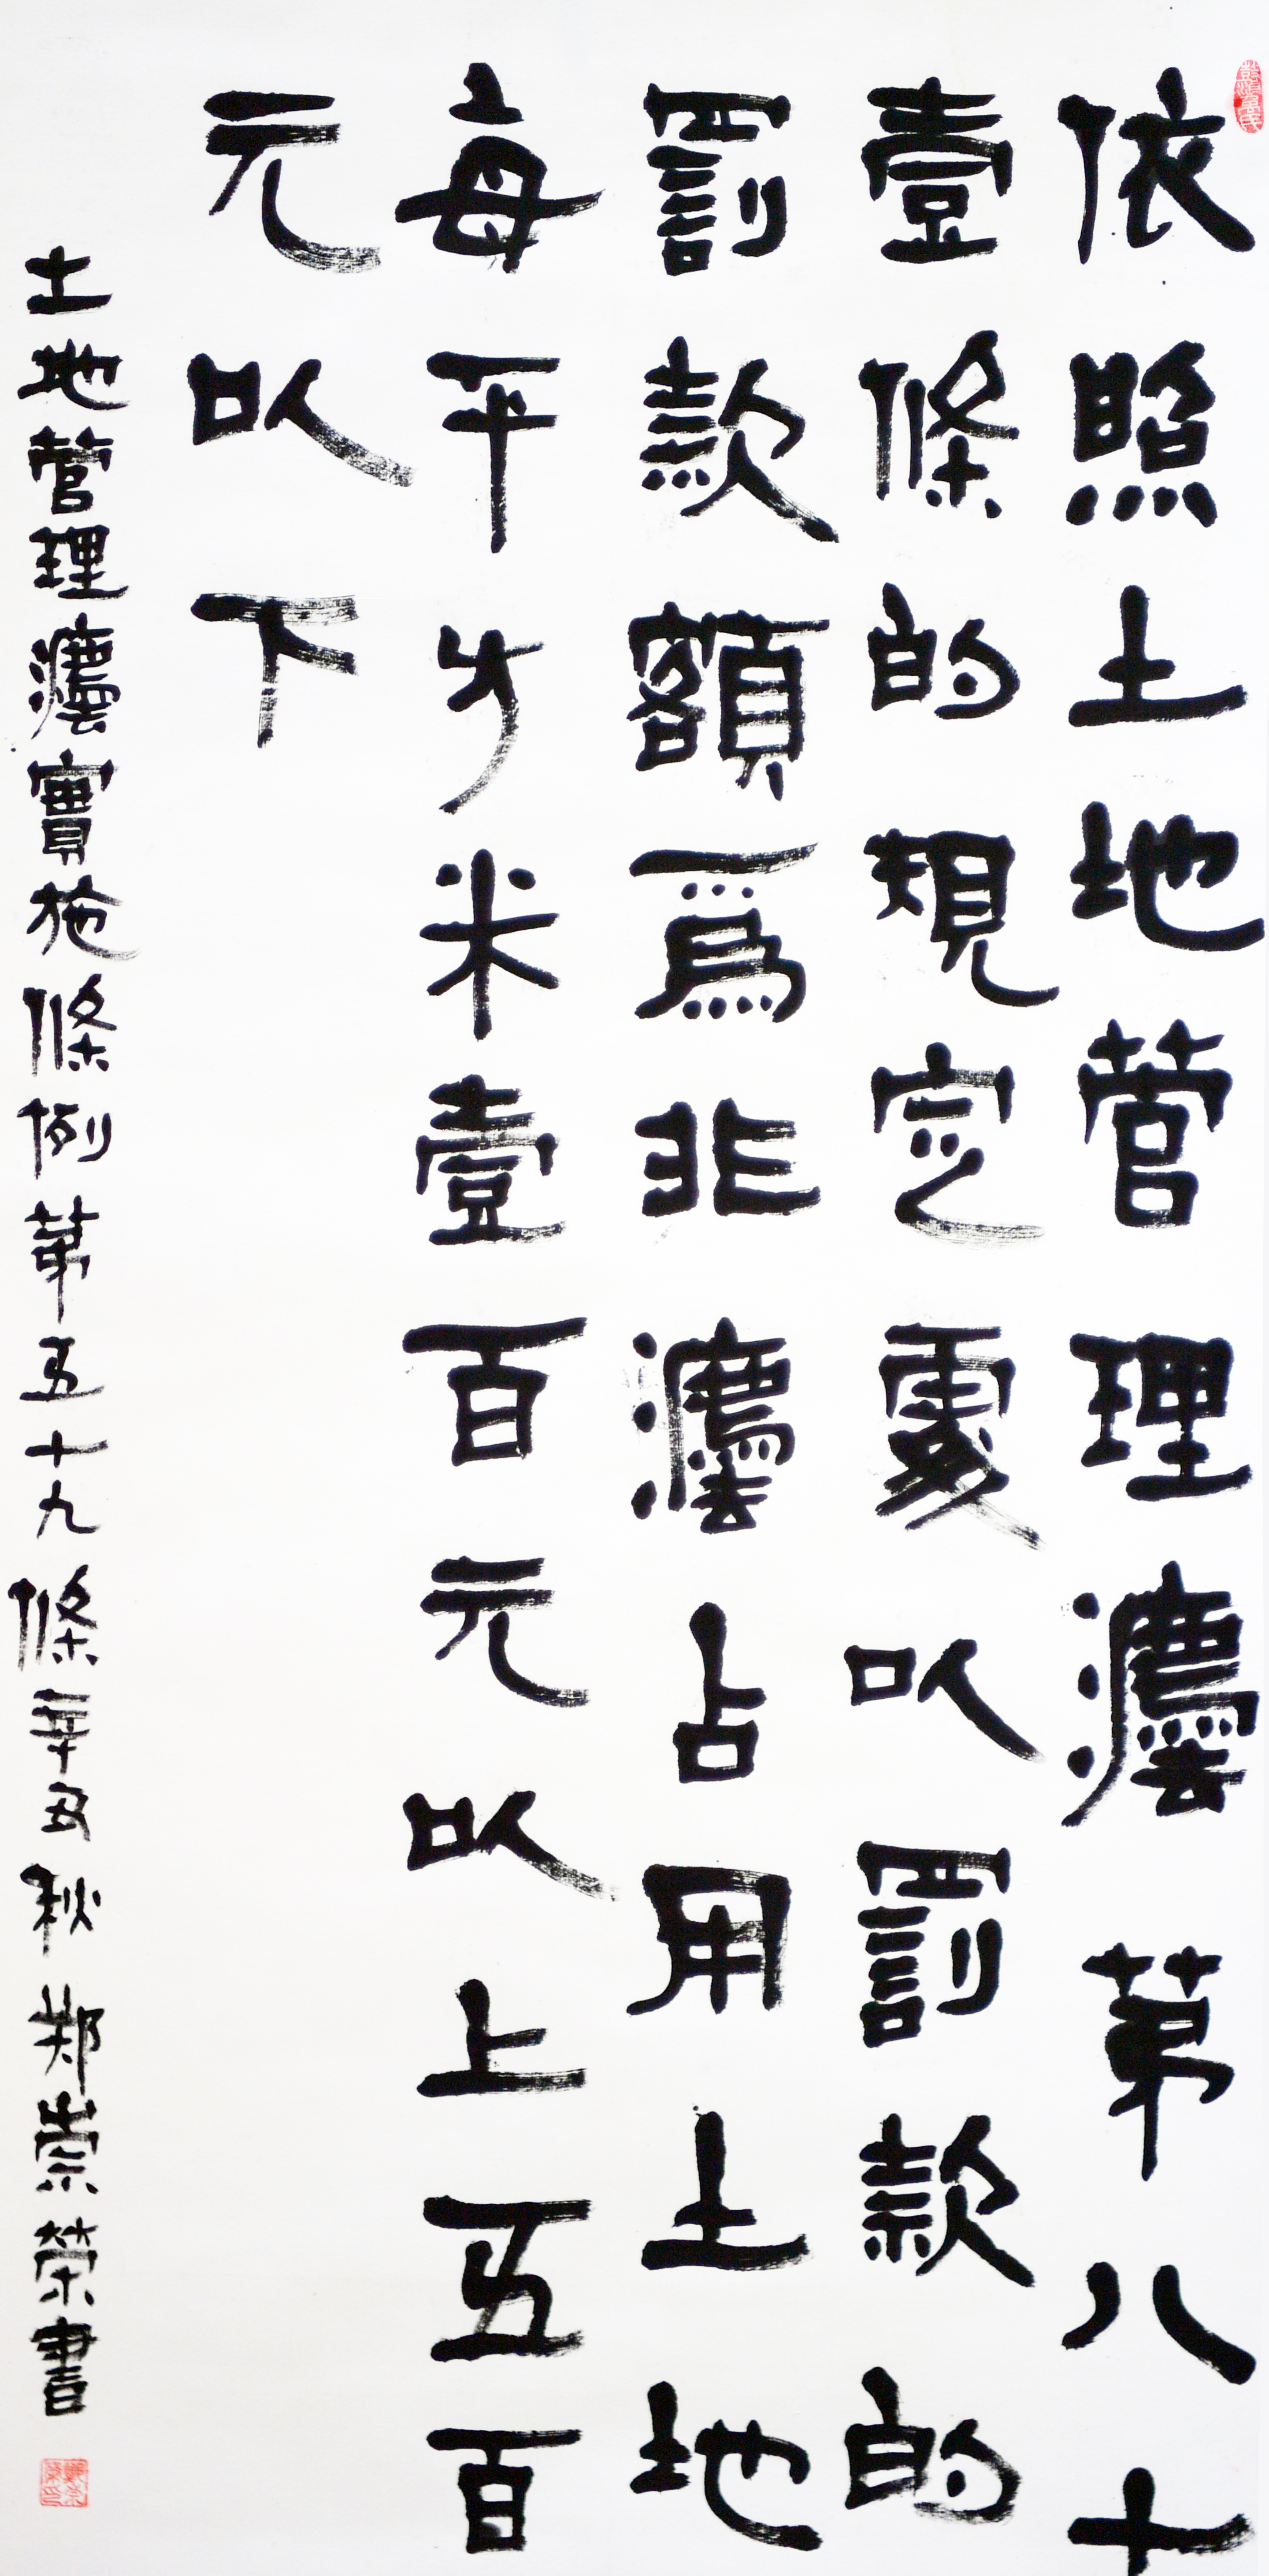 依照土地管理灋第八十
壹條的規定處以罰款的
罰款額爲非灋占用土地
每平方米壹百元以上五百
元以下
土地管理灋實施條例第五十九條辛丑秋鄭崇榮書